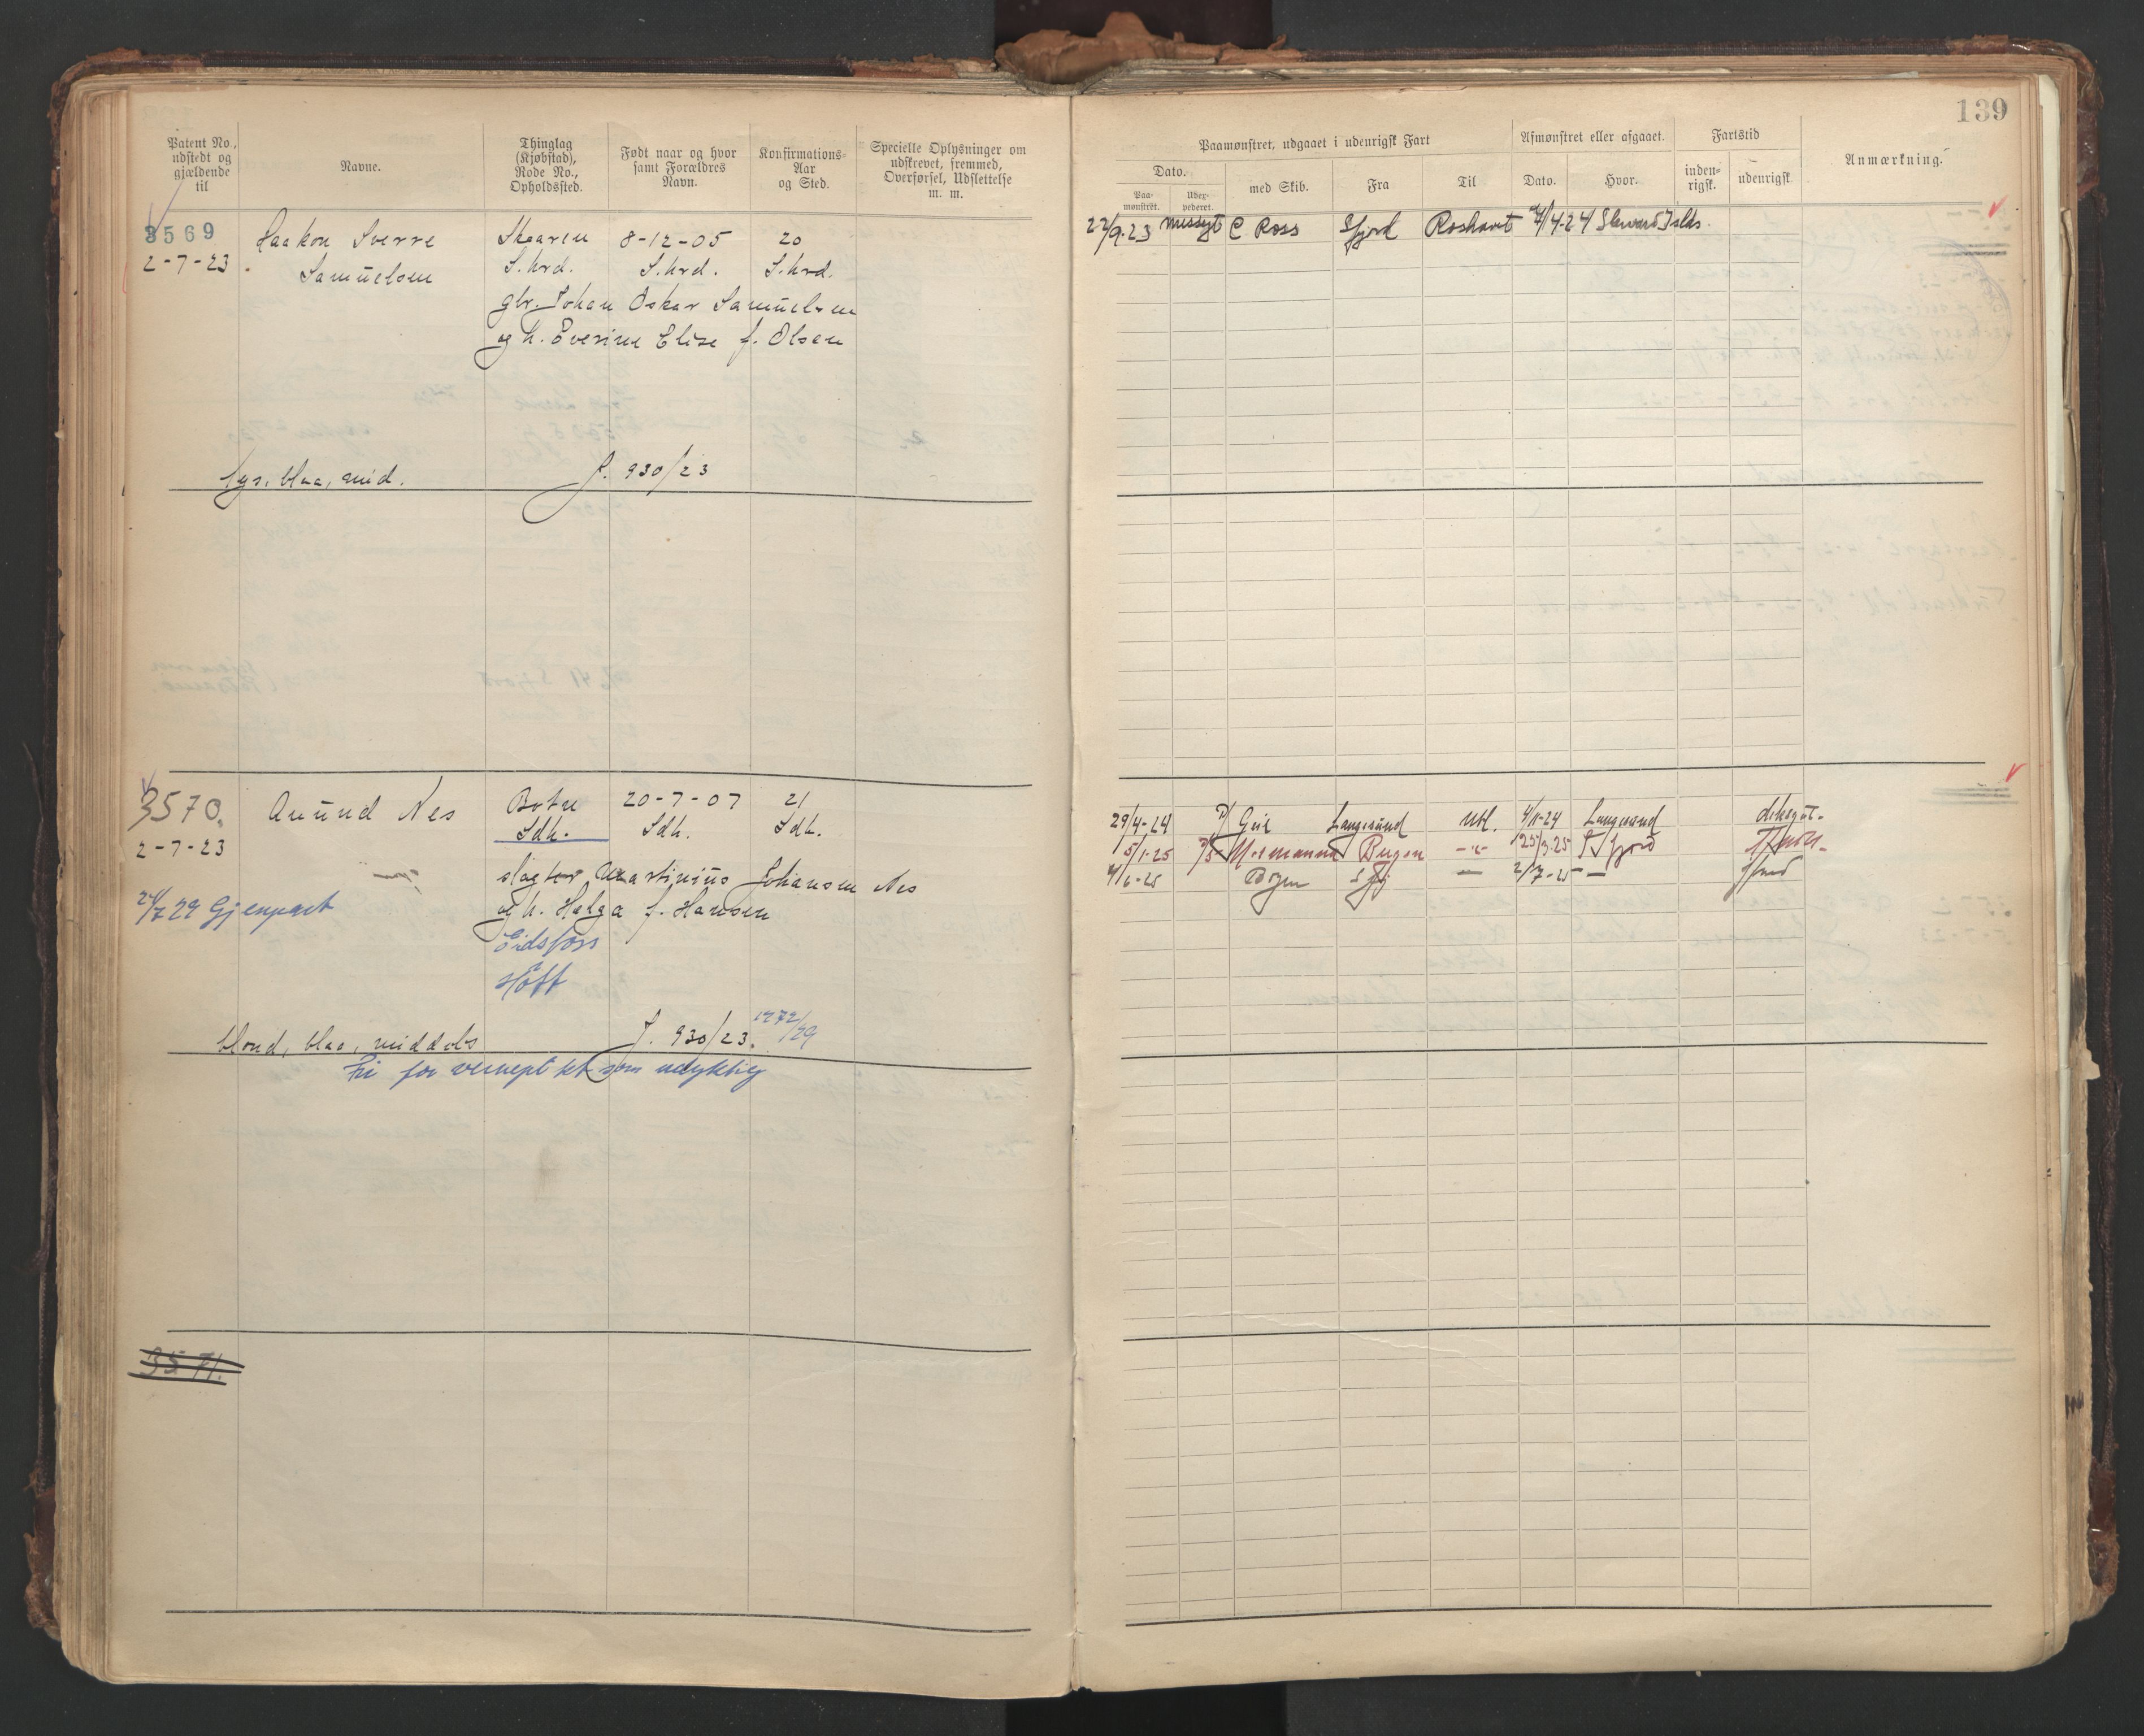 139
Patent No., udstedt og gjældende til
Navne.
Thinglag (Kjøbstad), Rode No., Opholdssted.
Født naar og hvor samt Forældres Navn.
Konfirmations-Aar og Sted.
Specielle Oplysninger om udskrevet, fremmed, Overførsel, Udslettelse m. m.
Paamønstret, udgaaet i udenrigsk Fart
Afmønstret eller afgaaet.
Fartstid
Anmærkning.
Dato.
med Skib.
Fra
Til
Dato.
Hvor.
inden-rigsk.
udenrigsk
Paa-mønstret.
3569 Haakon Sverre Skaaren 8-12-05 20
2-7-23 Samuelsen S.hrd. S.hrd. S.hrd.
gbr. Johan Oskar Samuelsen
og h. Everine Elise f. Olsen
lys, blaa, mid. J. 930/23
22/9-23 C Ross Sfjord Rosshavet 4-24
3570. Amund Nes Botne 20-7-07 21
2-7-23 Sdh. Sdh. Sdh.
slagter Martinius Johansen Nes
og h. Helga f. Hansen
29 Gjenpart
Eidsfoss
Hoff
blond, blaa, middels J. 930/23. 1272/29
Fri for vernepl kt som udyktig
29/4-24 Geir Langesund Utl. 4/11-24 Langesund
5/1-25 Normanna Bergen -"- 25/3-25 S fjord
4/6-25 Sfj — 2/7-25 —
3571.